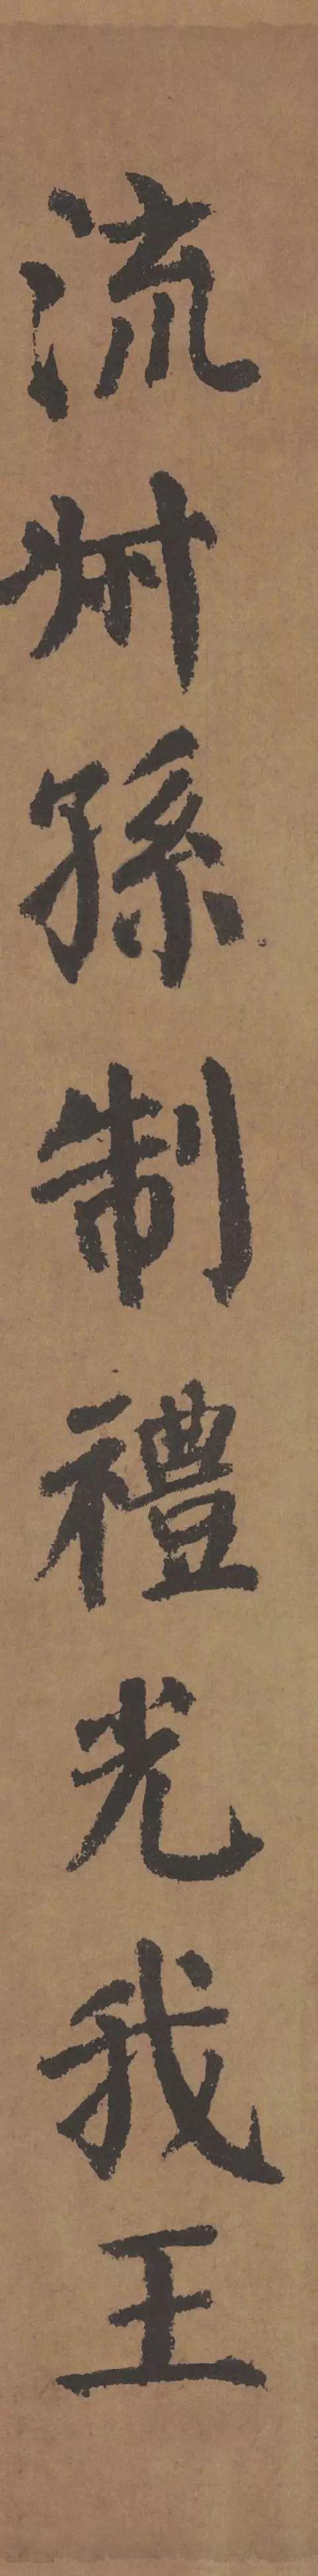 流叔孫制禮光我王